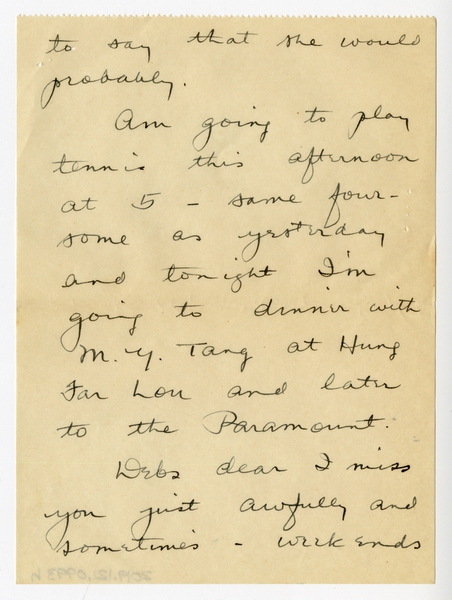 to say that she would
probably.
Am going to play
tennis this afternoon
at 5 - same four-
some as yesterday
and tonight I'm
going to dinner with
M. Y. Tang at Hung
Far Lou and later
to the Paramount.
Debs dear I miss
you just awfully and
sometimes - week ends
2019.121.0993h